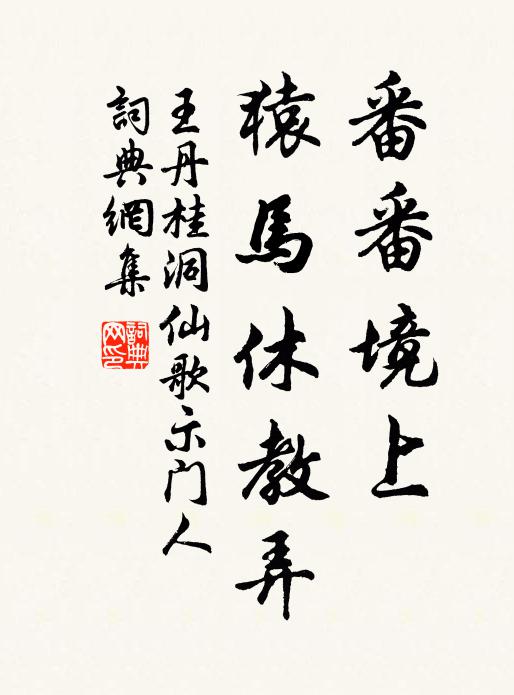 番番境上
猿馬休教弄
王丹桂洞仙歌示门人
詞典網集
詞典網印